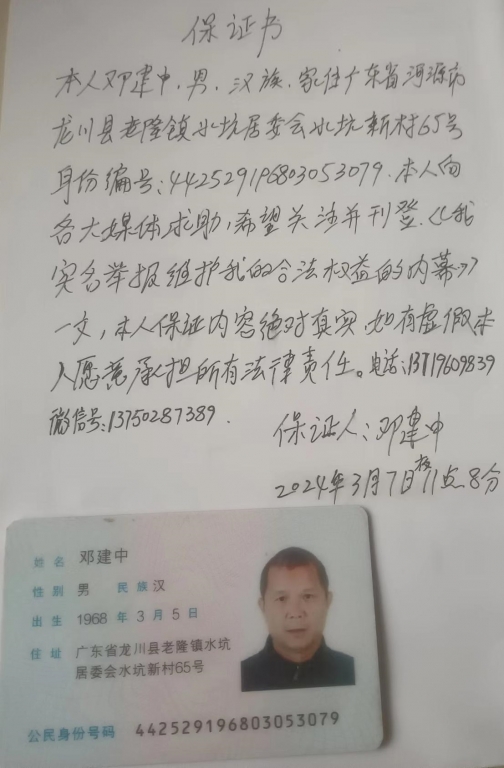 保证书
本人邓建中,男,汉族,家住广东省河源市
龙川县老隆镇水坑居委会水坑新村65号
身份编号:442529196803053079.本人向
各大媒体求助,希望关注并刊登《我
实名举报维护我的合法权益的内幕》
一文,本人保证内容绝对真实,如有虚假本
人愿意承担所有法律责任。电话:13719609839
微信号:13750287389.
保证人:邓建中
2024年3月7日夜11点8分
姓名 邓建中
性别 男 民族 汉
出生 1968 年 3 月 5 日
住址 广东省龙川县老隆镇水坑
居委会水坑新村65号
公民身份号码 442529196803053079